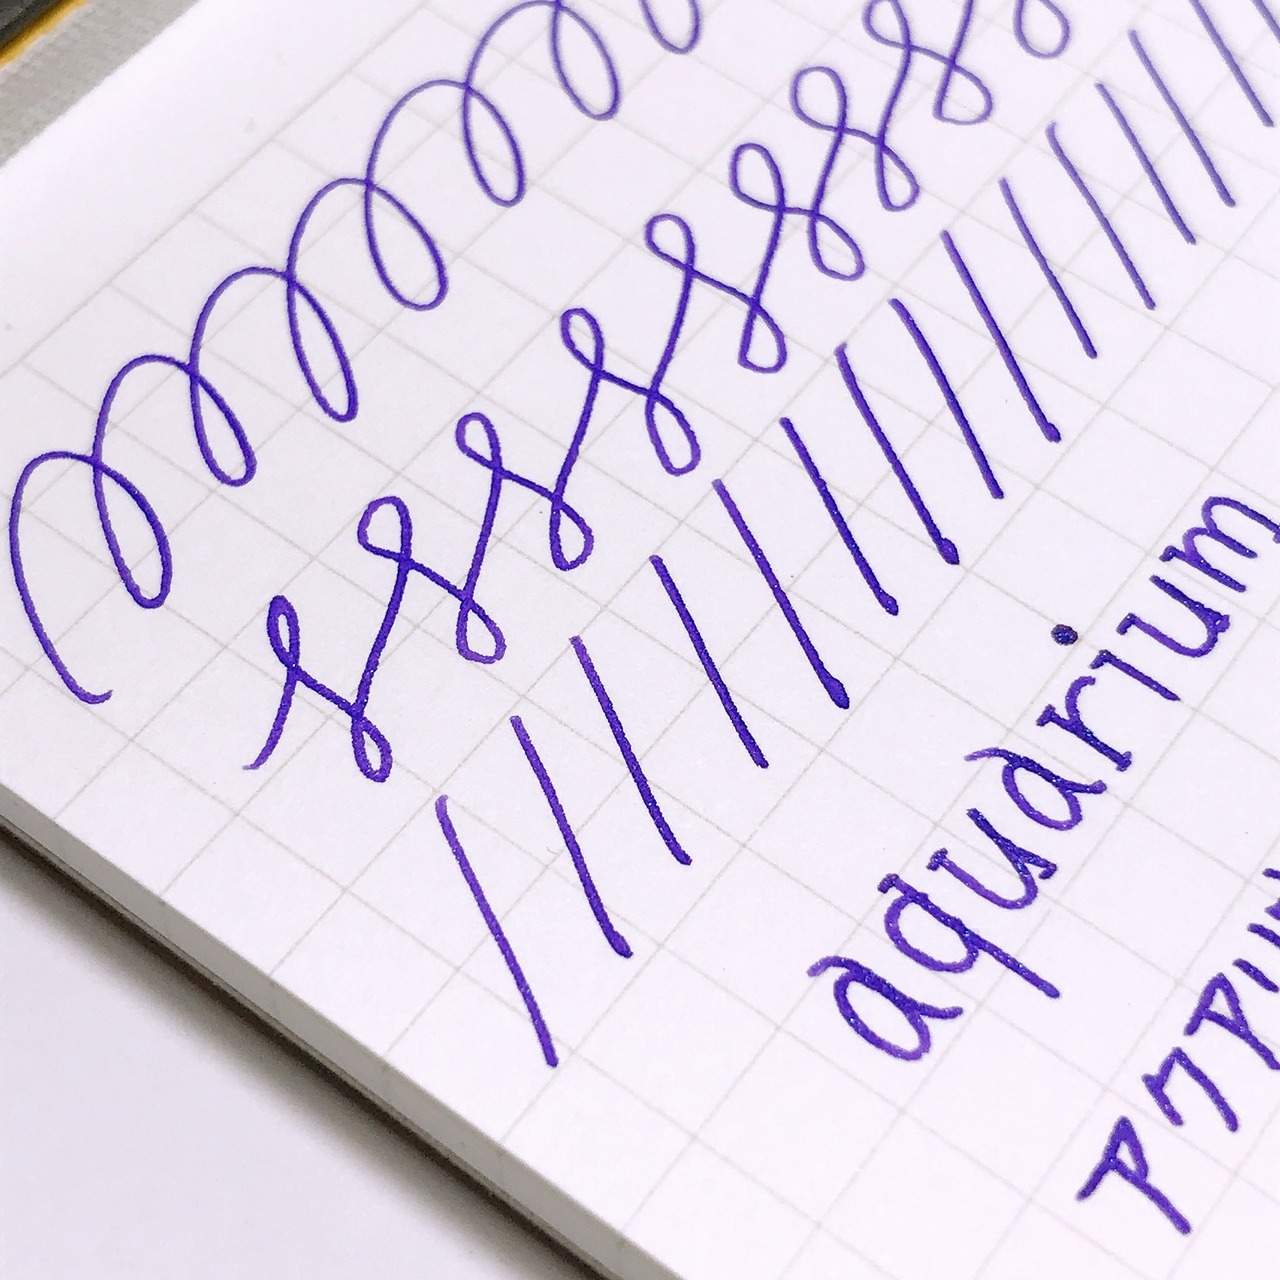 aquarium
アクアリ